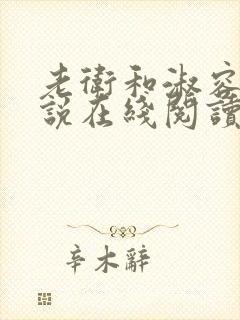 老衛和淑容
說在綫閱讀
辛木辭